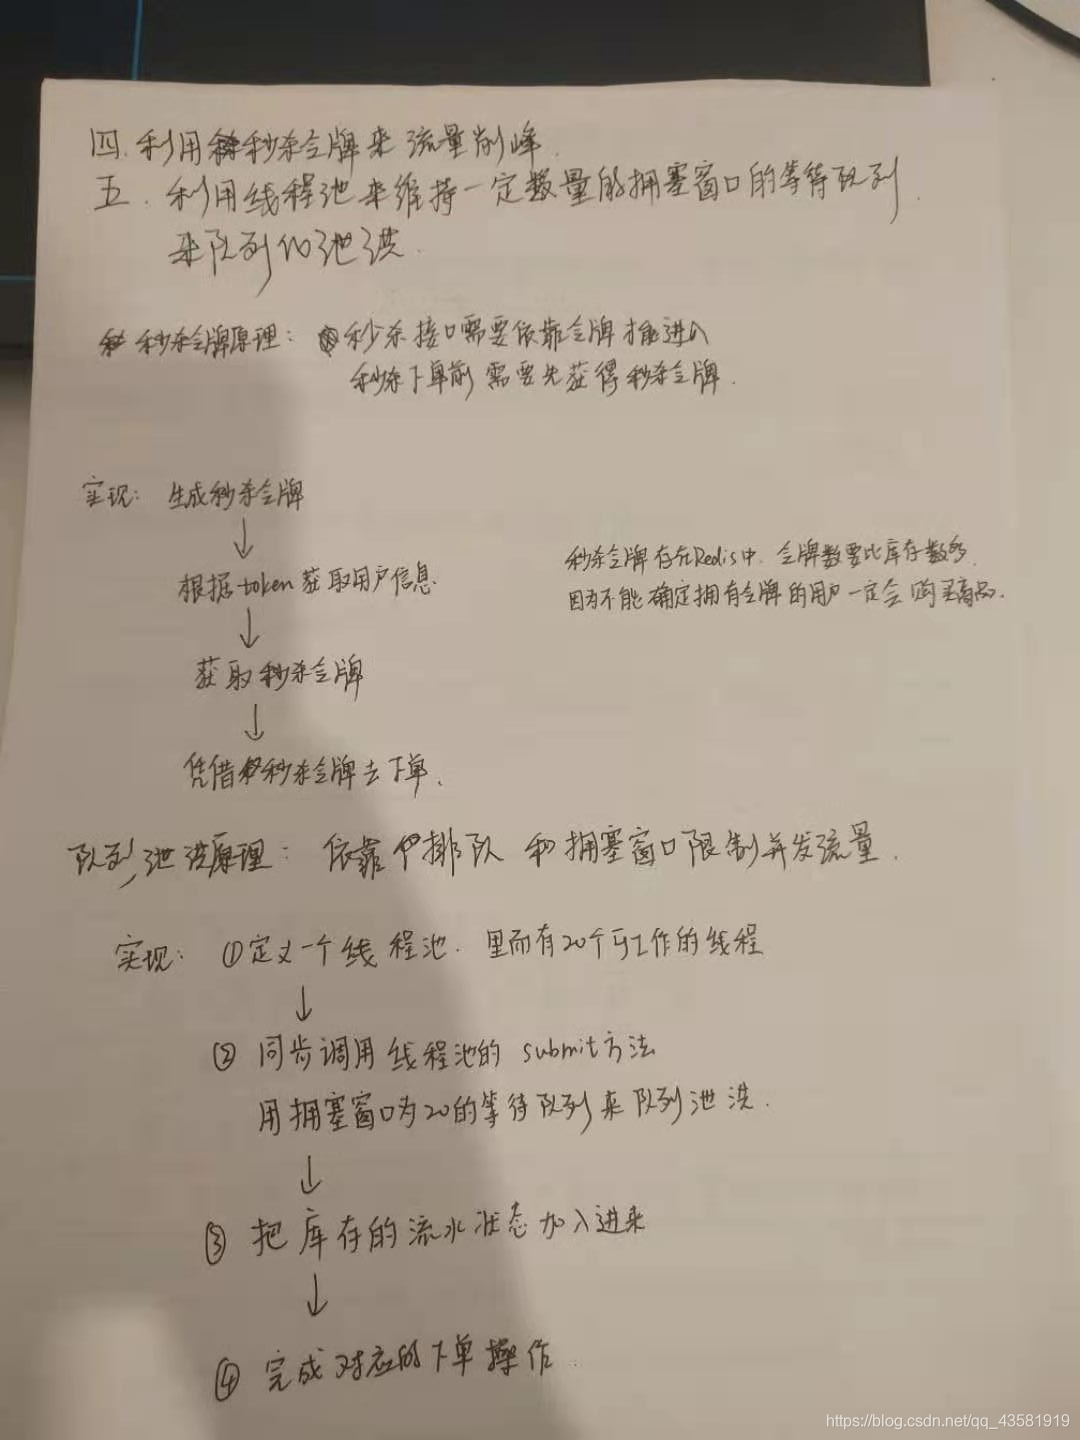 四.利用秒杀令牌来流量削峰.
五.利用线程池来维持一定数量的拥塞窗口的等待队列.
来队列化泄洪.
秒杀令牌原理: 秒杀接口需要依靠令牌才能进入
秒杀下单前需要先获得秒杀令牌.
实现: 生成秒杀令牌
↓
根据token获取用户信息.
↓
获取秒杀令牌
↓
凭借秒杀令牌去下单.
秒杀令牌存在Redis中. 令牌数要比库存数多.
因为不能确定拥有令牌的用户一定会购买商品.
队列泄洪原理: 依靠排队和拥塞窗口限制并发流量.
实现: ①定义一个线程池. 里面有20个可工作的线程
↓
② 同步调用线程池的 submit方法
用拥塞窗口为20的等待队列来队列泄洪.
↓
③ 把库存的流水状态加入进来
↓
④ 完成对应的下单操作.
https://blog.csdn.net/qq_43581919